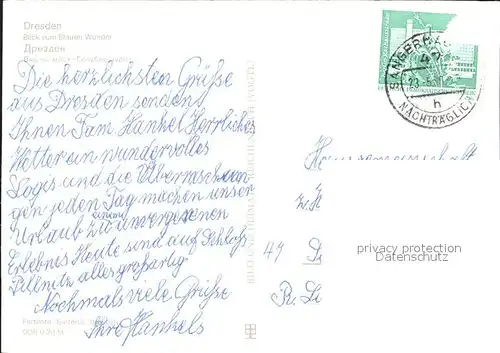 Dresden
Blick vom Blauen Wunder
Дрезден
Die herzlichsten Grüße
aus Dresden senden
Ihnen Fam Hankel Herrliches
Wetter ein wundervolles
Logis und die Überraschun
gen jeden Tag machen unser
Urlaub zu
einem
unvergesenen
Erlebnes Heute sind auf Schloß
Pillnitz allergroßartig.
Nochmals viele Grüße
Ihre Hankels
SANGERHAUSEN
42
23.-5.
h
NACHTRÄGLICH
Hausgemeinschaft
49
privacy protection
Datenschutz